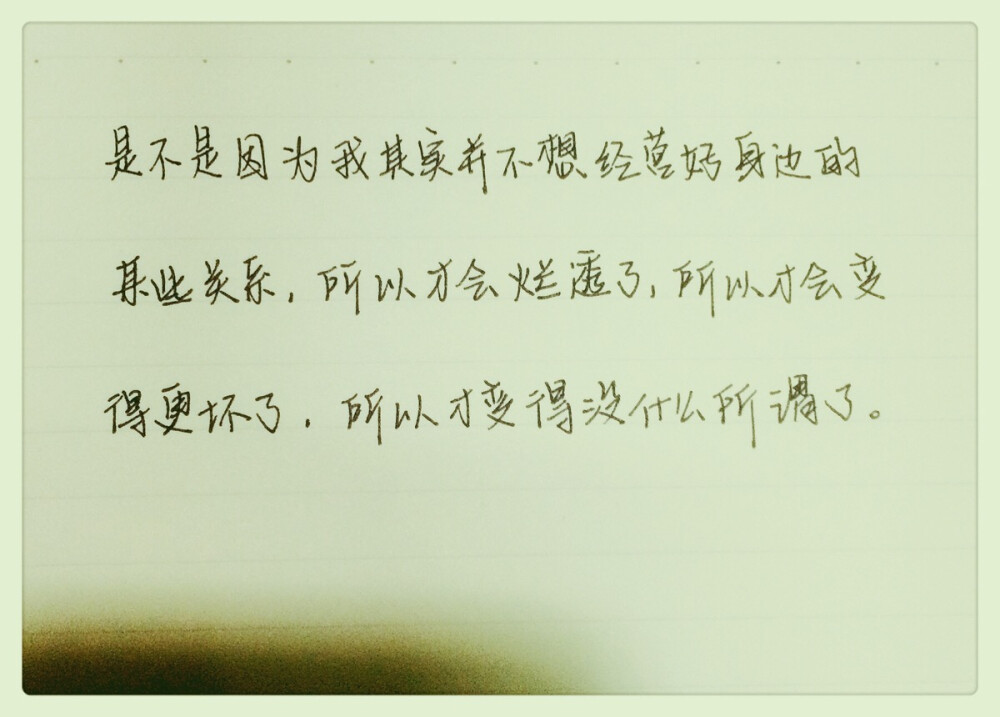 是不是因为我其实并不想经营好身边的
某些关系,所以才会烂透了,所以才会变
得更坏了,所以才变得没什么所谓了。